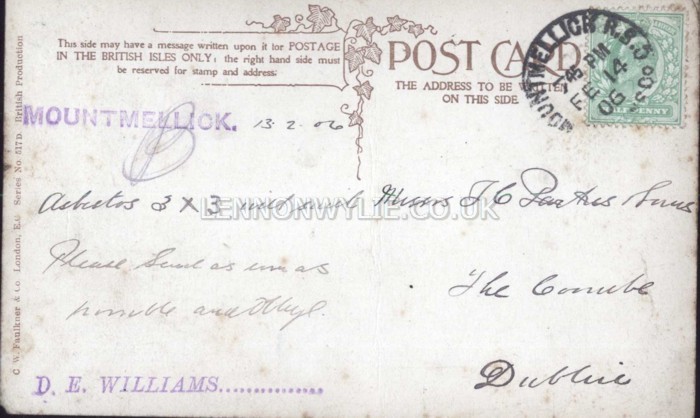 This side may have a message written upon it for POSTAGE
IN THE BRITISH ISLES ONLY; the right hand side must
be reserved for stamp and address.
POST CARD
THE ADDRESS TO BE WRITTEN
ON THIS SIDE
MOUNTMELLICK R.S.O
7 45 PM
FE 14
06
PENNY
MOUNTMELLICK.
13.2.06
Asbestos 3 x 3
Messrs T C Sons
LENNONWYLIE.CO.UK
Please Send as soon as
possible and
The Coombe
Dublin
D. E. WILLIAMS
C. W. Faulkner & Co. London, E.C. Series No. 517D. British Production